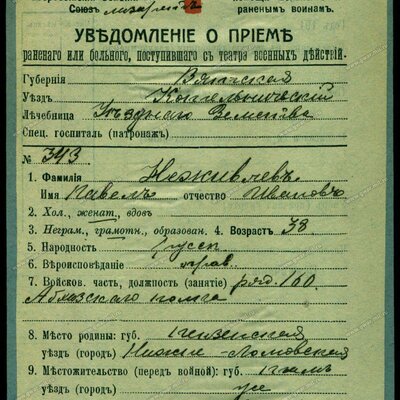 Союз лазаретъ
раненымъ воинамъ.
УВѢДОМЛЕНІЕ О ПРІЕМѢ
раненаго или больного, поступившаго съ театра военныхъ дѣйствій.
Губернія Вятская
Уѣздъ Котельничскій
Лѣчебница Уѣзднаго Земства
Спец. госпиталь (патронажъ)
№ 343
1. Фамилія
Имя Павелъ отчество Ивановъ
2. Хол., женат., вдовъ
3. Неграм., грамотн., образован. 4. Возрастъ 38
5. Народность русск
6. Вѣроисповѣданіе прав.
7. Войсков. часть, должность (занятіе) ряд. 160
Абхазскаго полка
8. Мѣсто родины: губ. Пензенская
уѣздъ (городъ) Нижне-Ломовской
9. Мѣстожительство (передъ войной): губ. тамъ
уѣздъ (городъ) же